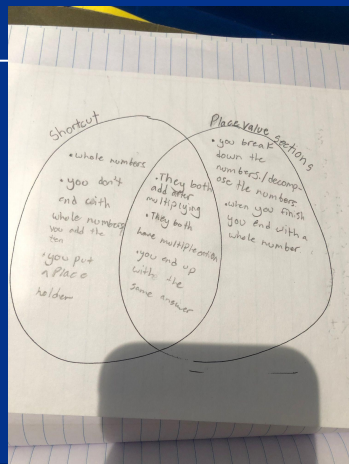 Shortcut
• whole numbers
• you don't
end with
whole numbers
you add the
ten
• you put
a place
holder
• They both
add after
multiplying
• They both
have multiplication
• you end up
with the
same answer
Place value sections
• you break
down the
numbers./decomp-
ose the numbers
• when you finish
you end with a
whole number